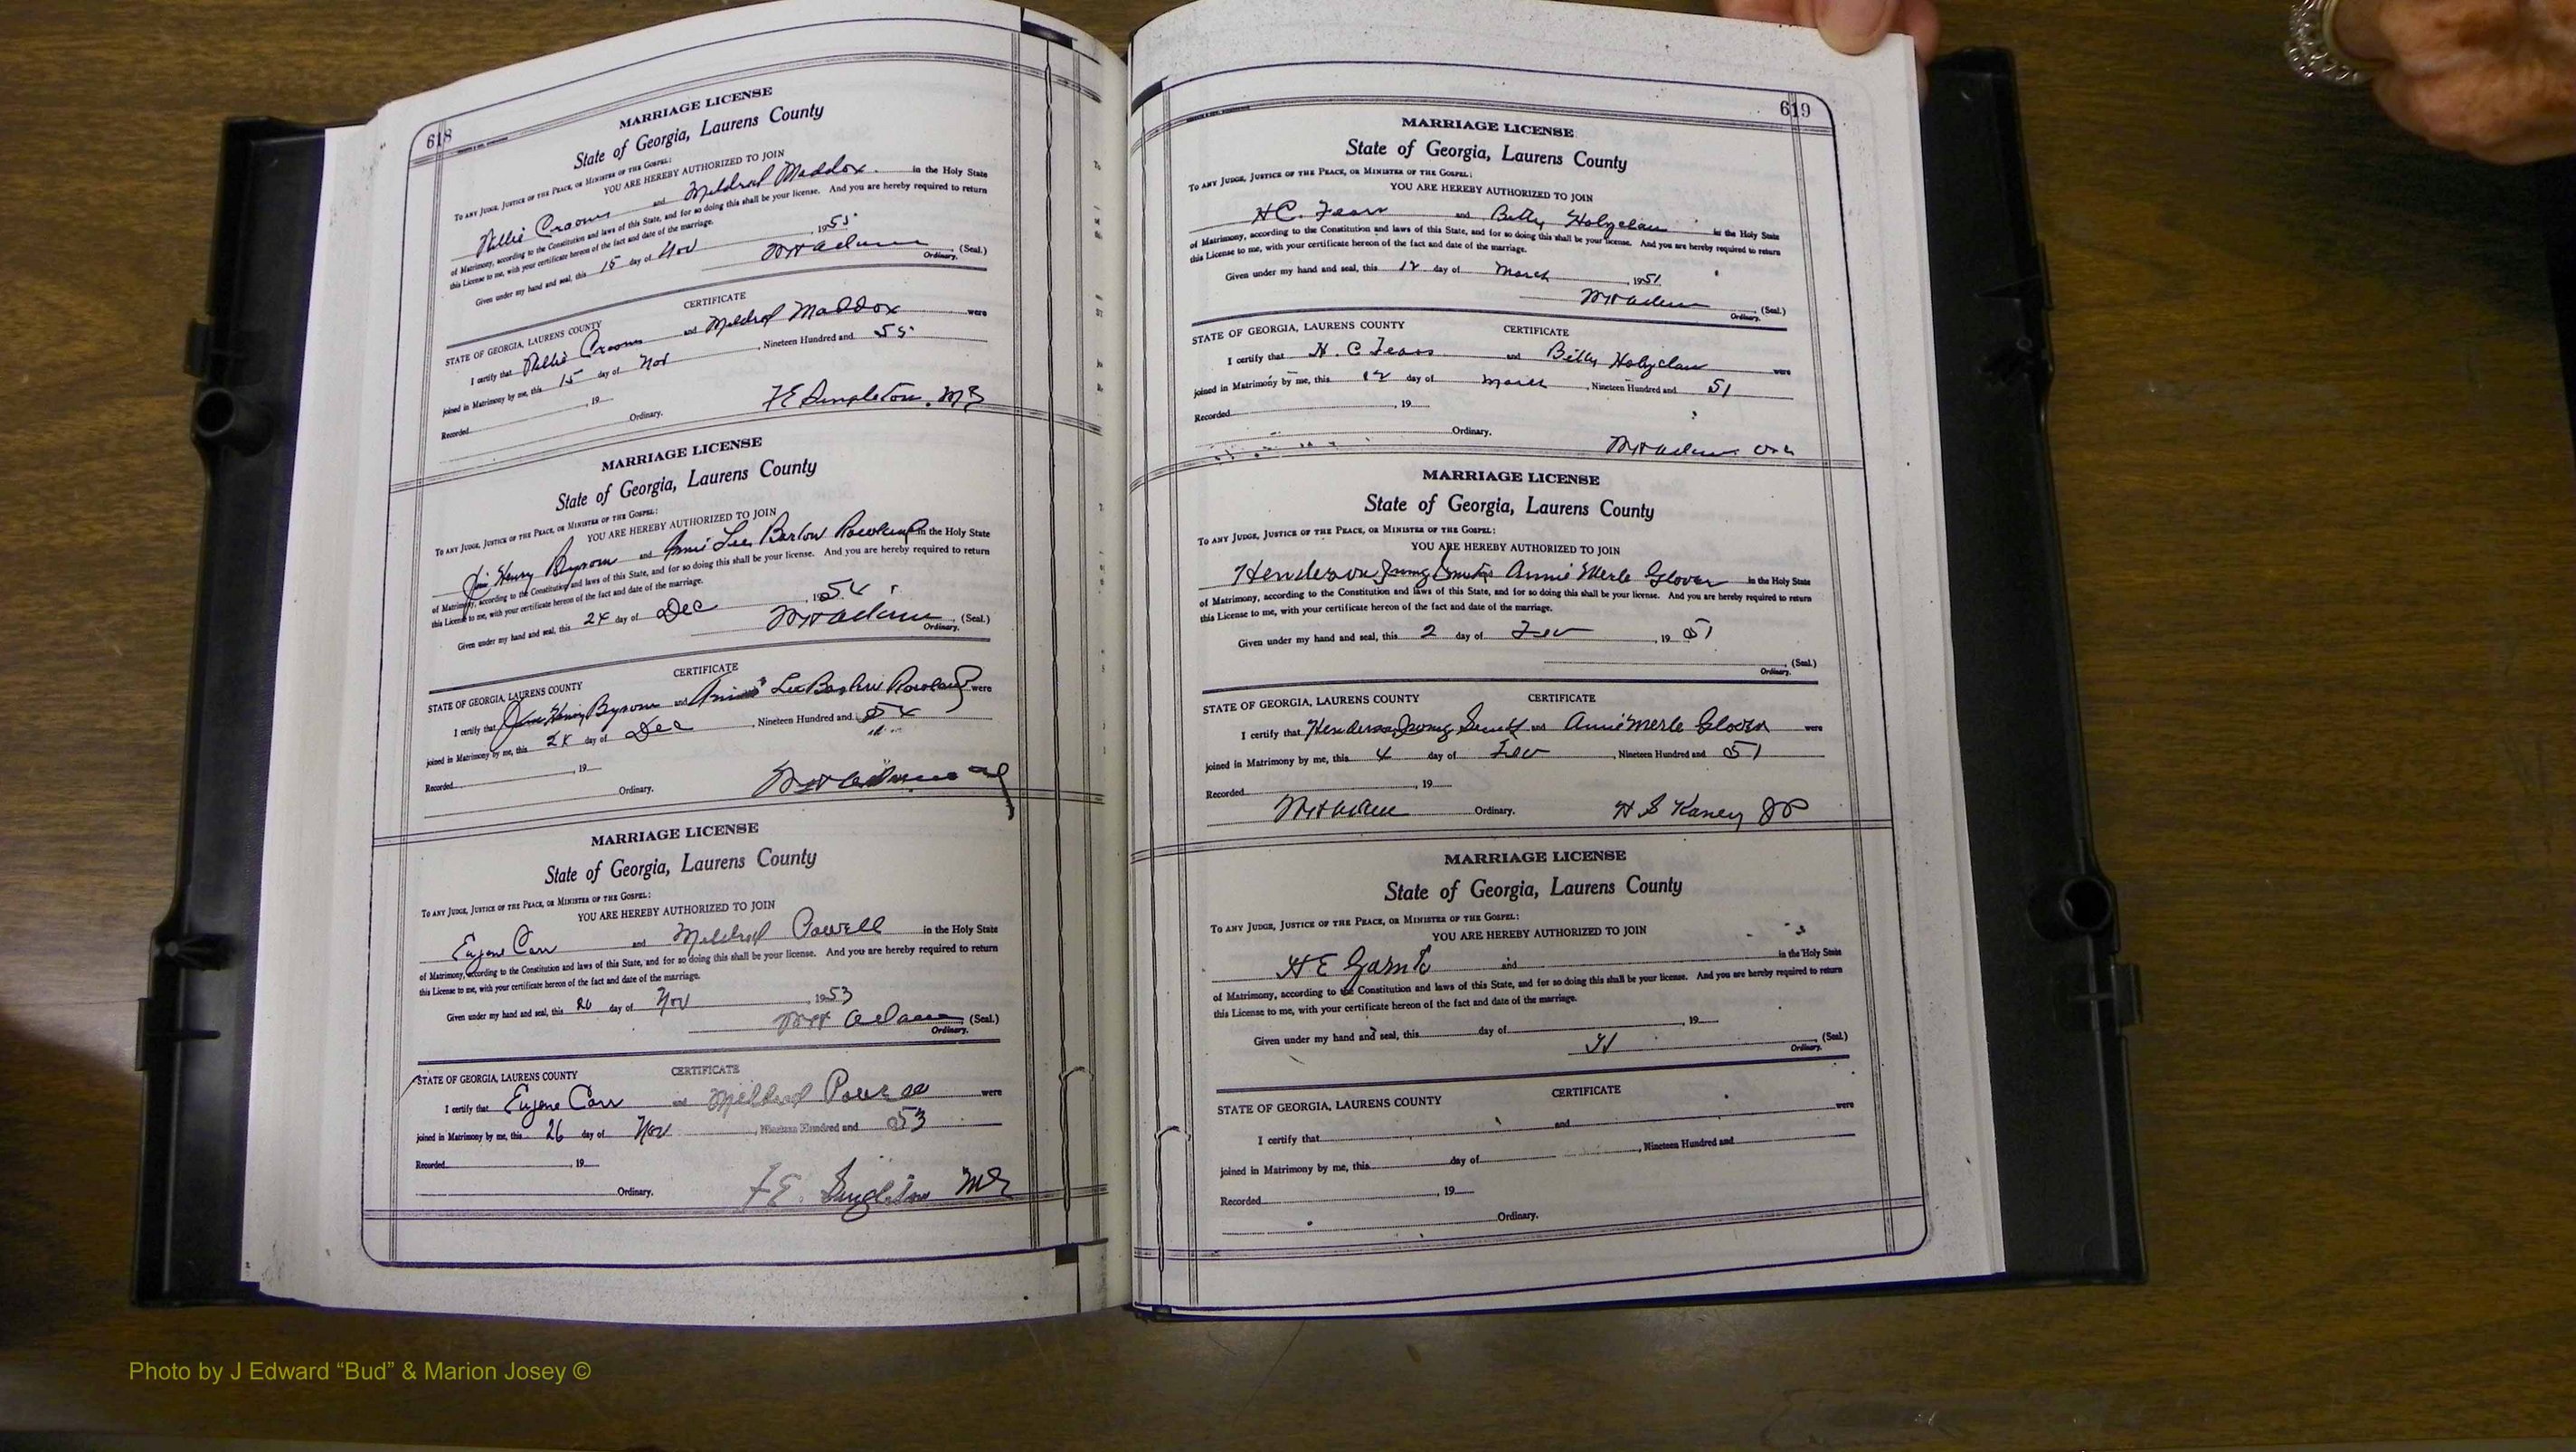 618
MARRIAGE LICENSE
State of Georgia, Laurens County
TO ANY JUDGE, JUSTICE OF THE PEACE, OR MINISTER OF THE GOSPEL:
YOU ARE HEREBY AUTHORIZED TO JOIN
and Mildred Maddox in the Holy State
of Matrimony, according to the Constitution and laws of this State, and for so doing this shall be your license. And you are hereby required to return
this License to me, with your certificate hereon of the fact and date of the marriage.
Given under my hand and seal, this 15 day of Nov, 1955
(Seal.)
Ordinary.
CERTIFICATE
STATE OF GEORGIA, LAURENS COUNTY
I certify that and Mildred Maddox were
joined in Matrimony by me, this 15 day of Nov, Nineteen Hundred and 55
Recorded, 19
Ordinary.
F E Singleton, MG
MARRIAGE LICENSE
State of Georgia, Laurens County
TO ANY JUDGE, JUSTICE OF THE PEACE, OR MINISTER OF THE GOSPEL:
YOU ARE HEREBY AUTHORIZED TO JOIN
Jim Henry Byrom and Annie Lee Barlow Rowland in the Holy State
of Matrimony, according to the Constitution and laws of this State, and for so doing this shall be your license. And you are hereby required to return
this License to me, with your certificate hereon of the fact and date of the marriage.
Given under my hand and seal, this 24 day of Dec, 1954
(Seal.)
Ordinary.
CERTIFICATE
STATE OF GEORGIA, LAURENS COUNTY
I certify that Henry Byrom and Annie Lee Rowland were
joined in Matrimony by me, this 24 day of Dec, Nineteen Hundred and 54
Recorded, 19
Ordinary.
MARRIAGE LICENSE
State of Georgia, Laurens County
TO ANY JUDGE, JUSTICE OF THE PEACE, OR MINISTER OF THE GOSPEL:
YOU ARE HEREBY AUTHORIZED TO JOIN
Eugene Carr and Mildred Powell in the Holy State
of Matrimony, according to the Constitution and laws of this State, and for so doing this shall be your license. And you are hereby required to return
this License to me, with your certificate hereon of the fact and date of the marriage.
Given under my hand and seal, this day of Nov, 1953
Adams (Seal.)
Ordinary.
CERTIFICATE
STATE OF GEORGIA, LAURENS COUNTY
I certify that Eugene Carr and Mildred Powell were
joined in Matrimony by me, this 26 day of Nov, Nineteen Hundred and 53
Recorded, 19
Ordinary.
F E. Singleton MG
619
MARRIAGE LICENSE
State of Georgia, Laurens County
TO ANY JUDGE, JUSTICE OF THE PEACE, OR MINISTER OF THE GOSPEL:
YOU ARE HEREBY AUTHORIZED TO JOIN
H C. Fears and Betty Holyclaw in the Holy State
of Matrimony, according to the Constitution and laws of this State, and for so doing this shall be your license. And you are hereby required to return
this License to me, with your certificate hereon of the fact and date of the marriage.
Given under my hand and seal, this 12 day of March, 1951
(Seal.)
Ordinary.
STATE OF GEORGIA, LAURENS COUNTY
CERTIFICATE
I certify that H. C Fears and Betty Holyclaw were
joined in Matrimony by me, this 12 day of March, Nineteen Hundred and 51
Recorded, 19
Ordinary.
MARRIAGE LICENSE
State of Georgia, Laurens County
TO ANY JUDGE, JUSTICE OF THE PEACE, OR MINISTER OF THE GOSPEL:
YOU ARE HEREBY AUTHORIZED TO JOIN
Henderson Annie Merle Glover in the Holy State
of Matrimony, according to the Constitution and laws of this State, and for so doing this shall be your license. And you are hereby required to return
this License to me, with your certificate hereon of the fact and date of the marriage.
Given under my hand and seal, this 2 day of Feb, 19 51
(Seal.)
Ordinary.
STATE OF GEORGIA, LAURENS COUNTY
CERTIFICATE
I certify that Henderson Smith and Annie Merle Glover were
joined in Matrimony by me, this 4 day of Feb, Nineteen Hundred and 51
Recorded, 19
Ordinary. H S Kaney JP
MARRIAGE LICENSE
State of Georgia, Laurens County
TO ANY JUDGE, JUSTICE OF THE PEACE, OR MINISTER OF THE GOSPEL:
YOU ARE HEREBY AUTHORIZED TO JOIN
H E and in the Holy State
of Matrimony, according to the Constitution and laws of this State, and for so doing this shall be your license. And you are hereby required to return
this License to me, with your certificate hereon of the fact and date of the marriage.
Given under my hand and seal, this day of, 19
(Seal.)
Ordinary.
CERTIFICATE
STATE OF GEORGIA, LAURENS COUNTY
I certify that and were
joined in Matrimony by me, this day of, Nineteen Hundred and
Recorded, 19
Ordinary.
Photo by J Edward “Bud” & Marion Josey ©